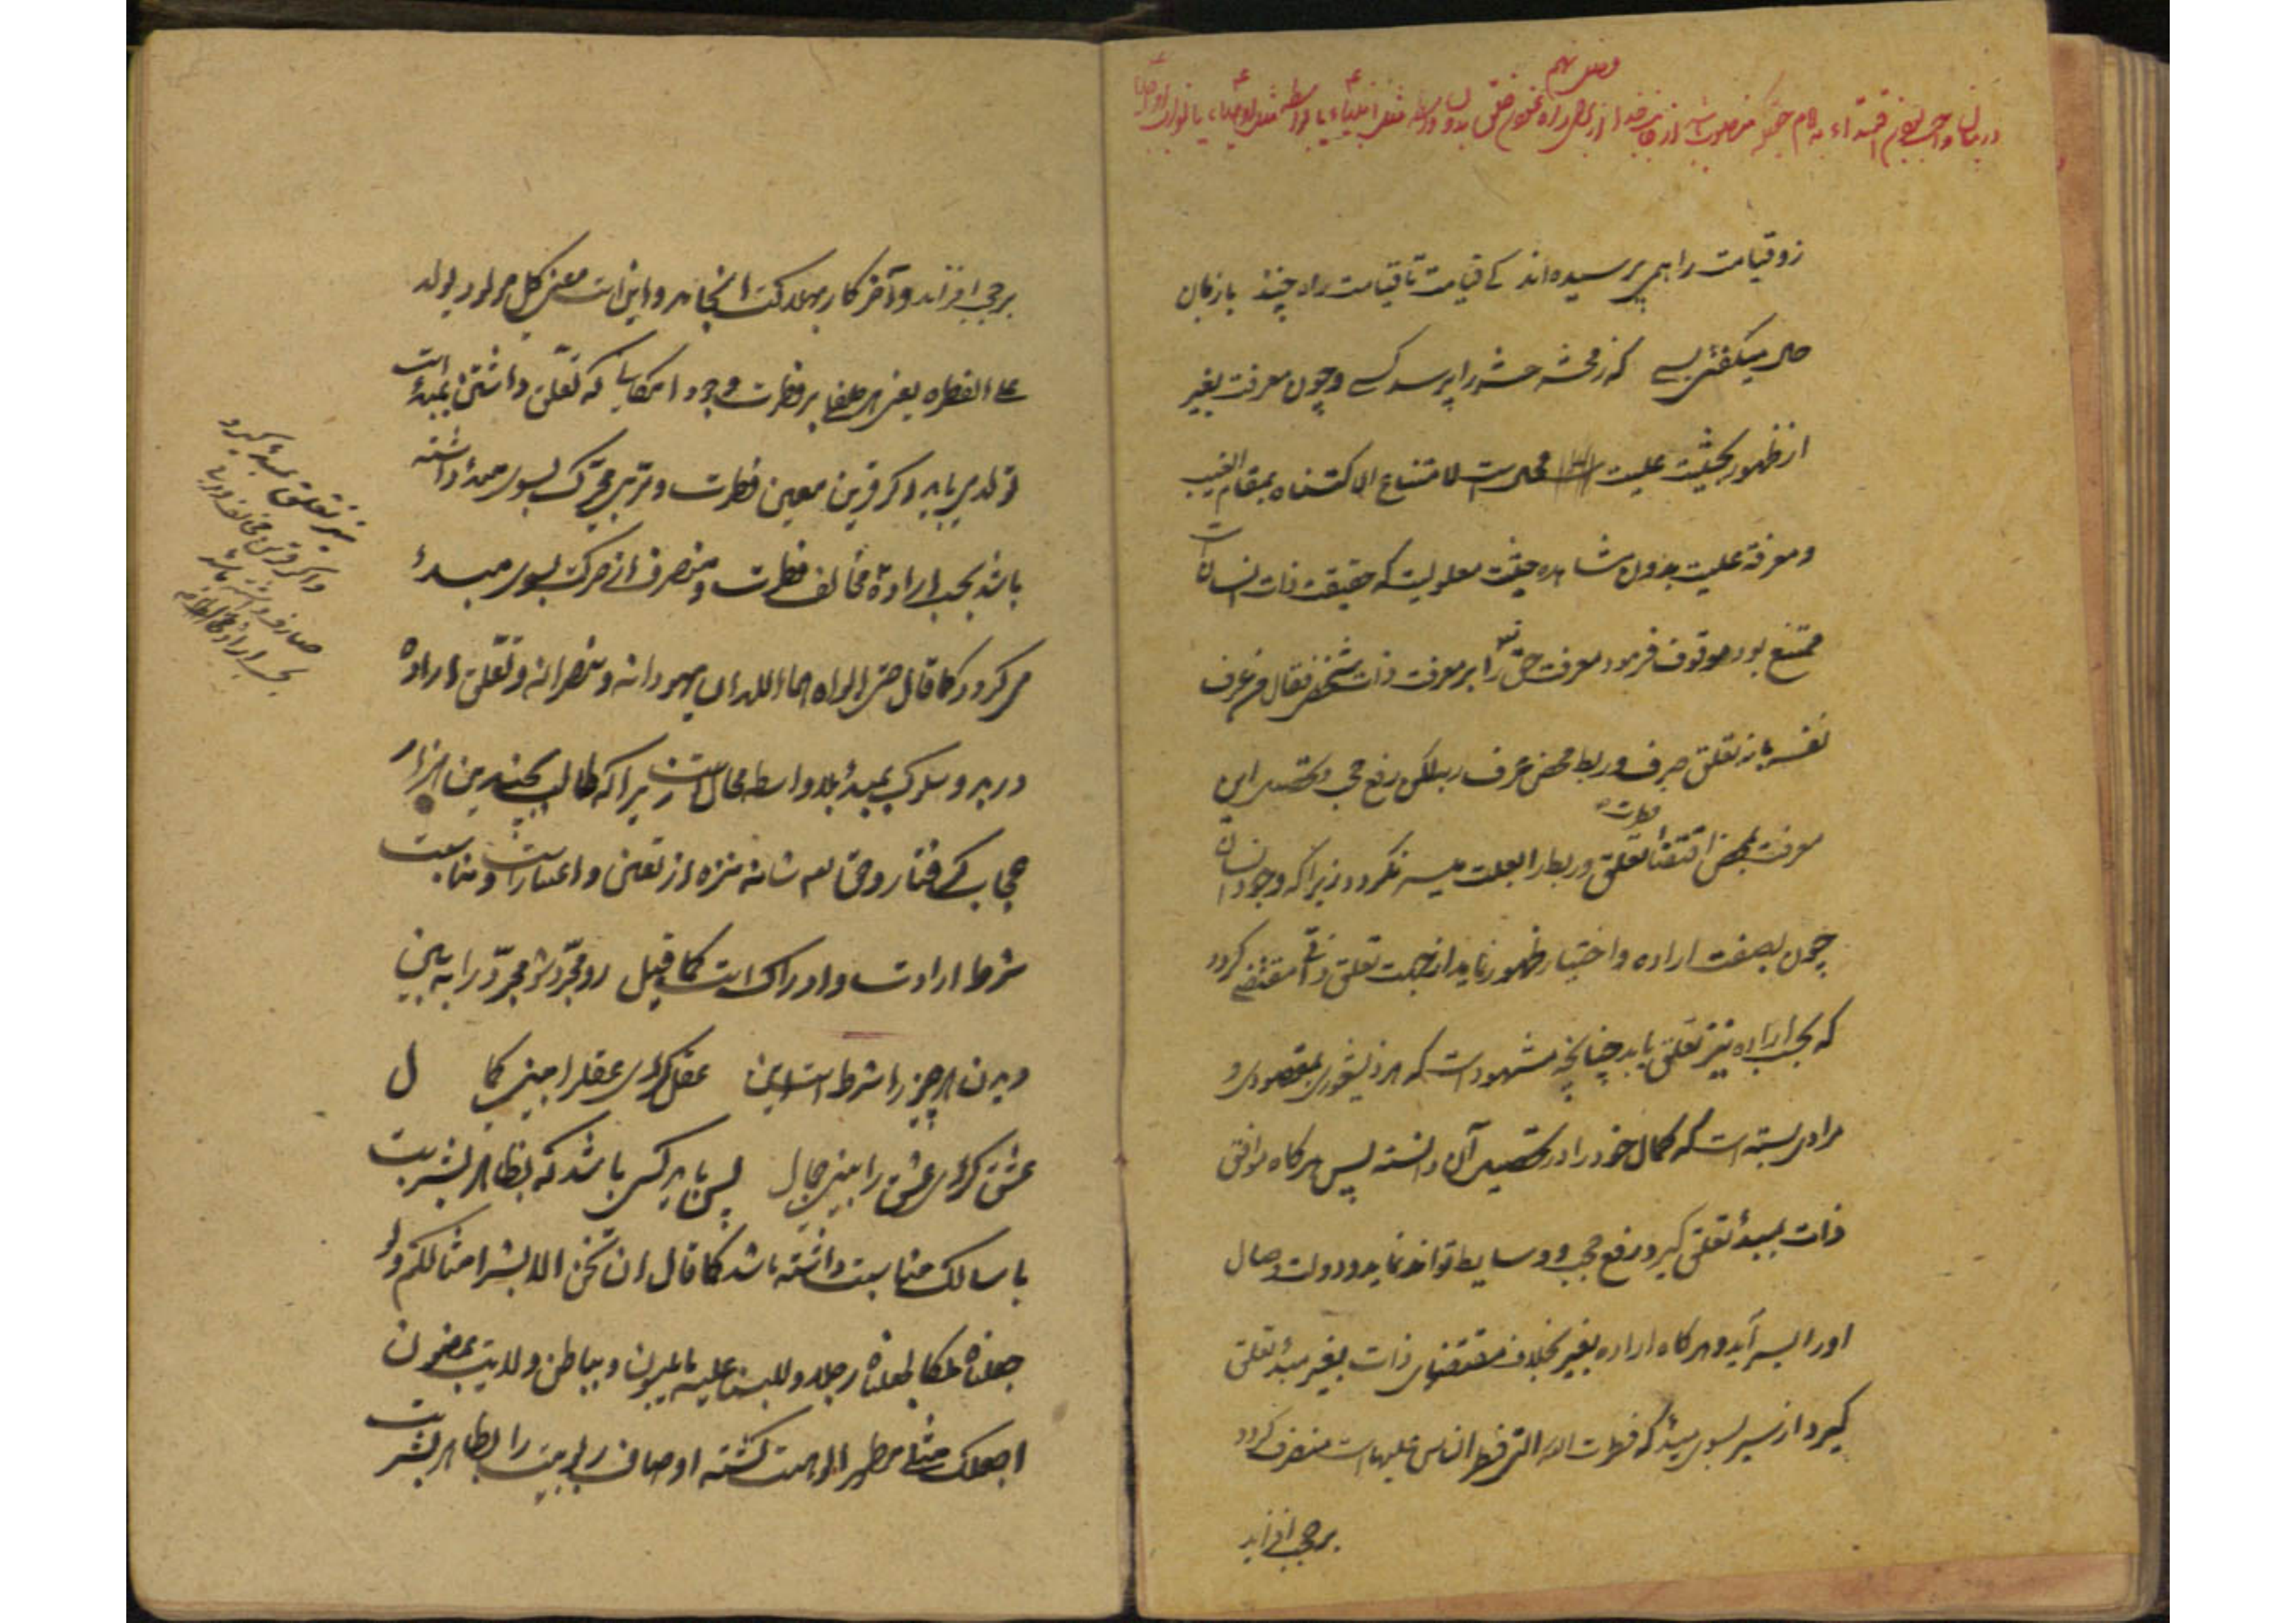 فصل نهم
در بیان واجب بودن اقتداء به امام که منصوب باشد از جانب خدا از برای راه نمودن خلق بدون واسطه مثل انبیاء یا بواسطه مثل اوصیاء یا نواب اوصیا
زو قیامت را همی پرسیده‌اند کی قیامت تا قیامت راه چند بازبان
حال میگفتی بسی که ز محشر حشر را پرسد کسی و چون معرفت بغیر
از ظهور بحیثیت علیت محال است لامتناع الاکتناه بمقام الغیب
و معرفة علیت بدون مشاهده حیثیت معلولیت که حقیقت ذات انسان است
ممتنع بود موقوف فرمود معرفت حق را بر معرفت ذات شخص فقال من عرف
نفسه بانه تعلق صرف و ربط محض عرف ربه لکن رفع حجب و تحصیل این
معرفت بمحض اقتضا فطرت تعلق و ربط را بعلت میسر نگردد زیرا که وجود انسان
چون بصفت اراده و اختیار ظهور نماید از جهت تعلق ذاتی مقتضی گردد
که بحسب اراده نیز تعلق یابد چنانچه مشهود است که هر ذیشعوری بمقصودی و
مرادی بسته است که کمال خود را در تحصیل آن دانسته پس هرگاه موافق
ذات بمبدأ تعلق گیرد رفع حجب و وسایط تواند نماید و دولت وصال
او را میسر آید و هرگاه اراده بغیر بخلاف مقتضای ذات بغیر مبدأ تعلق
گیرد از سیر بسوی مبدأ که فطرت الله التی فطر الناس علیها است منصرف گردد
بر حجب افزاید
بر حجب افزاند و آخر کار بهلاکت انجامد و این است معنی کل مولود یولد
علی الفطره یعنی هر طفلی بر فطرت وجود امکانی که تعلق داشتن بمبدأ است
تولد می‌یابد و اگر قرین معین فطرت و مربی محرک بسوی مبدأ داشته
باشد بحسب اراده مخالف فطرت و منصرف از حرکت بسوی مبدأ
می‌گردد کما قال حتی ابواه هما اللذان یهودانه و ینصرانه و تعلق اراده
در بدو سلوک بمبدأ بلاواسطه محال است زیرا که طالب بچندین هزار
حجاب گرفتار و حق تعالی شانه منزه از تعین و اعتبار است و مناسبت
شرط ارادت و ادراک است کما قیل رو مجرد شو مجرد را ببین
دیدن هر چیز را شرط است این عقل گردی عقل را بینی کمال
عشق گردی عشق را بینی جمال پس باید کسی باشد که بظاهر بشریت
با سالک مناسبت داشته باشد کما قال ان نحن الا بشر امثالکم ولو
جعلناه ملکا لجعلناه رجلا و للبسنا علیهم ما یلبسون و بباطن ولایت بمضمون
اجعلک مثلی مظهر الوهیت گشته اوصاف ربوبیت را بظاهر بشریت
نیز تعلق بمبدأ گیرد
و اگر قرین مخالف و مربی
صارف داشته باشد
بحسب اراده مخالف فطرت